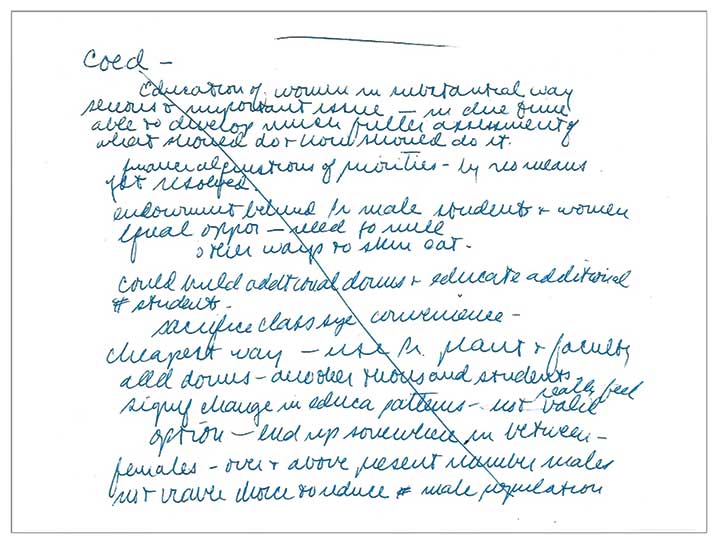 Coed –
Education of women in substantial way
serious & important issue – in due time
able to develop much fuller assessment of
what should do & how should do it.
financial questions of priorities – by no means
yet resolved.
endowment behind Pr male students & women
equal oppor – need to
other ways to skin cat.
could build additional dorms & educate additional
# students.
sacrifice class size convenience –
cheapest way – use Pr. plant & faculty
add dorms – another thousand students –
signif change in educa patterns – not valid
really feel
option – end up somewhere in between –
females – over & above present number males
not viable choice to reduce # male population